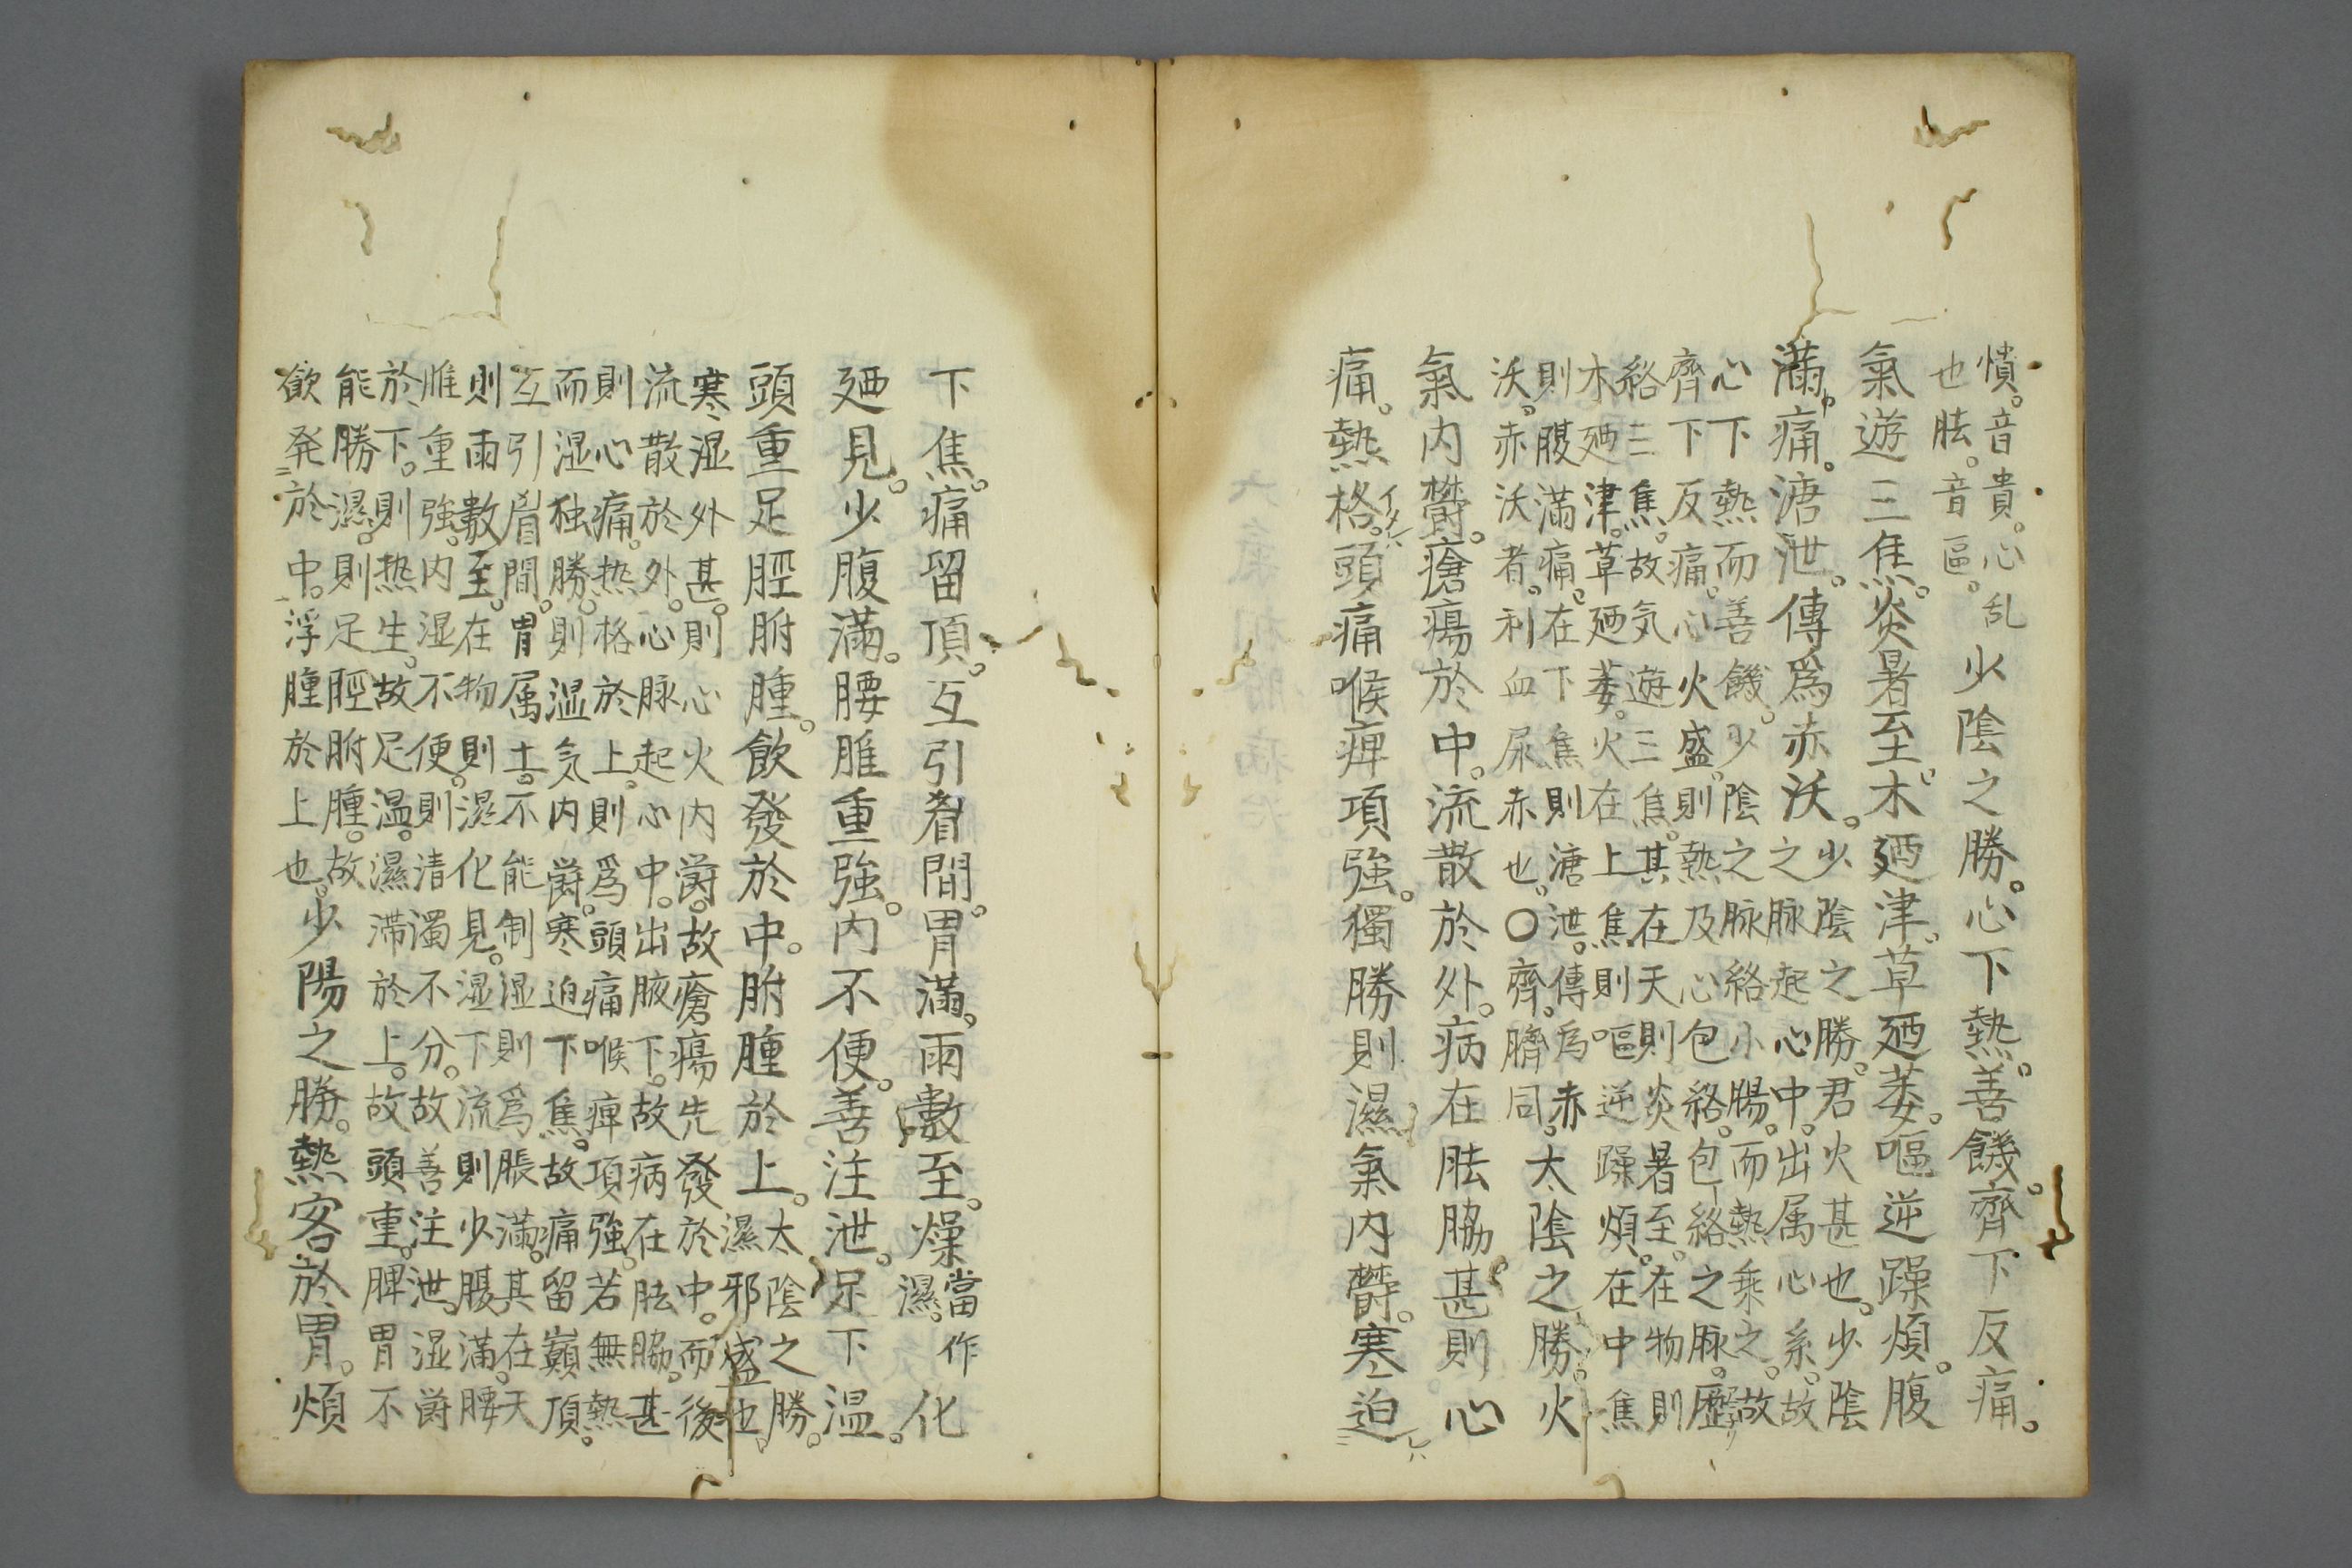 憒。音貴。心乱
也胠。音區。
少陰之勝。心下熱。善饑。齊下反痛。
氣遊三焦。炎暑至。木廼津。草廼萎。嘔逆躁煩。腹
滿痛。溏泄。傳爲赤沃。
少陰之勝。君火甚也。少陰
之脉起心中。出属心系。故
心下熱而善饑。少陰之脉絡小腸。而熱乗之。故
齊下反痛。心火盛。則熱及心包絡。包絡之脉。歷
絡三焦。故気遊三焦。其在天則炎暑至。在物則
木廼津。草廼萎。火在上焦則嘔逆躁煩。在中焦
則腹滿痛。在下焦則溏泄。傳為赤
沃。赤沃者。利血尿赤也。〇齊。臍同。
太陰之勝。火
氣内欝。瘡瘍於中。流散於外。病在胠脇。甚則心
痛。熱格。頭痛喉痺項強。獨勝則濕氣内欝。寒迫
下焦。痛留頂。互引眉間。胃滿。雨數至。燥
當作
濕。
化
廼見。少腹滿。腰脽重強。内不便。善注泄。足下温。
頭重足脛胕腫。飲發於中。胕腫於上。
太陰之勝。
濕邪盛也。
寒湿外甚。則心火内欝。故瘡瘍先發於中。而後
流散於外。心脉起心中。出腋下。故病在胠脇。甚
則心痛。热格於上。則爲頭痛喉痺項強。若無熱
而湿独勝。則湿気内欝。寒迫下焦。故痛留巓頂。
互引眉間。胃属土。不能制湿則爲脹滿。其在天
則雨數至。在物則濕化見。湿下流則少腹滿。腰
脽重強。内湿不便。則清濁不分。故善注泄。湿欝
於下。則热生。故足温。濕滞於上。故頭重。脾胃不
能勝濕。則足脛胕腫。故
飲発於中。浮腫於上也。
少陽之勝。熱客於胃。煩